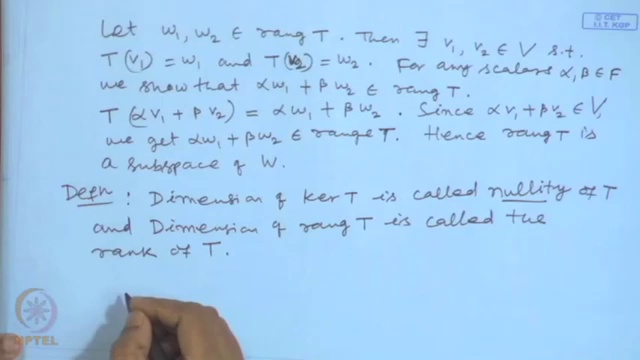 Let w₁, w₂ ∈ rang T. Then ∃ v₁, v₂ ∈ V s.t.
T(v₁) = w₁ and T(v₂) = w₂. For any scalars α, β ∈ F
we show that αw₁ + βw₂ ∈ rang T.
T(αv₁ + βv₂) = αw₁ + βw₂. Since αv₁ + βv₂ ∈ V,
we get αw₁ + βw₂ ∈ range T. Hence rang T is
a subspace of W.
Defn: Dimension of ker T is called nullity of T
and Dimension of rang T is called the
rank of T.
© CET
I.I.T. KGP
NPTEL